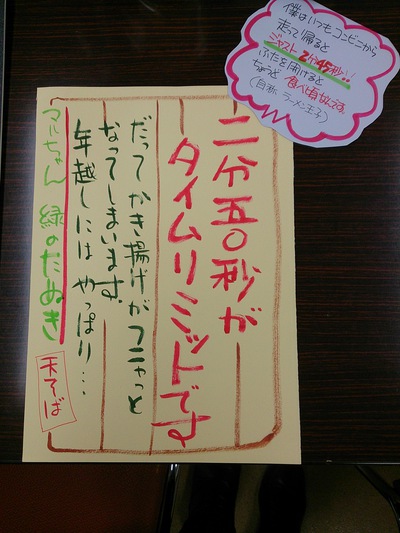 僕はいつもコンビニから
走って帰ると
ジャスト2分45秒!!
ふたを開けると
ちょうど食べ頃なんです。
(自称 ラーメン王子)
二分五〇秒が
タイムリミットです
だってかき揚げがフニャっと
なってしまいます。
年越しにはやっぱり…
マルちゃん 緑のたぬき
天そば